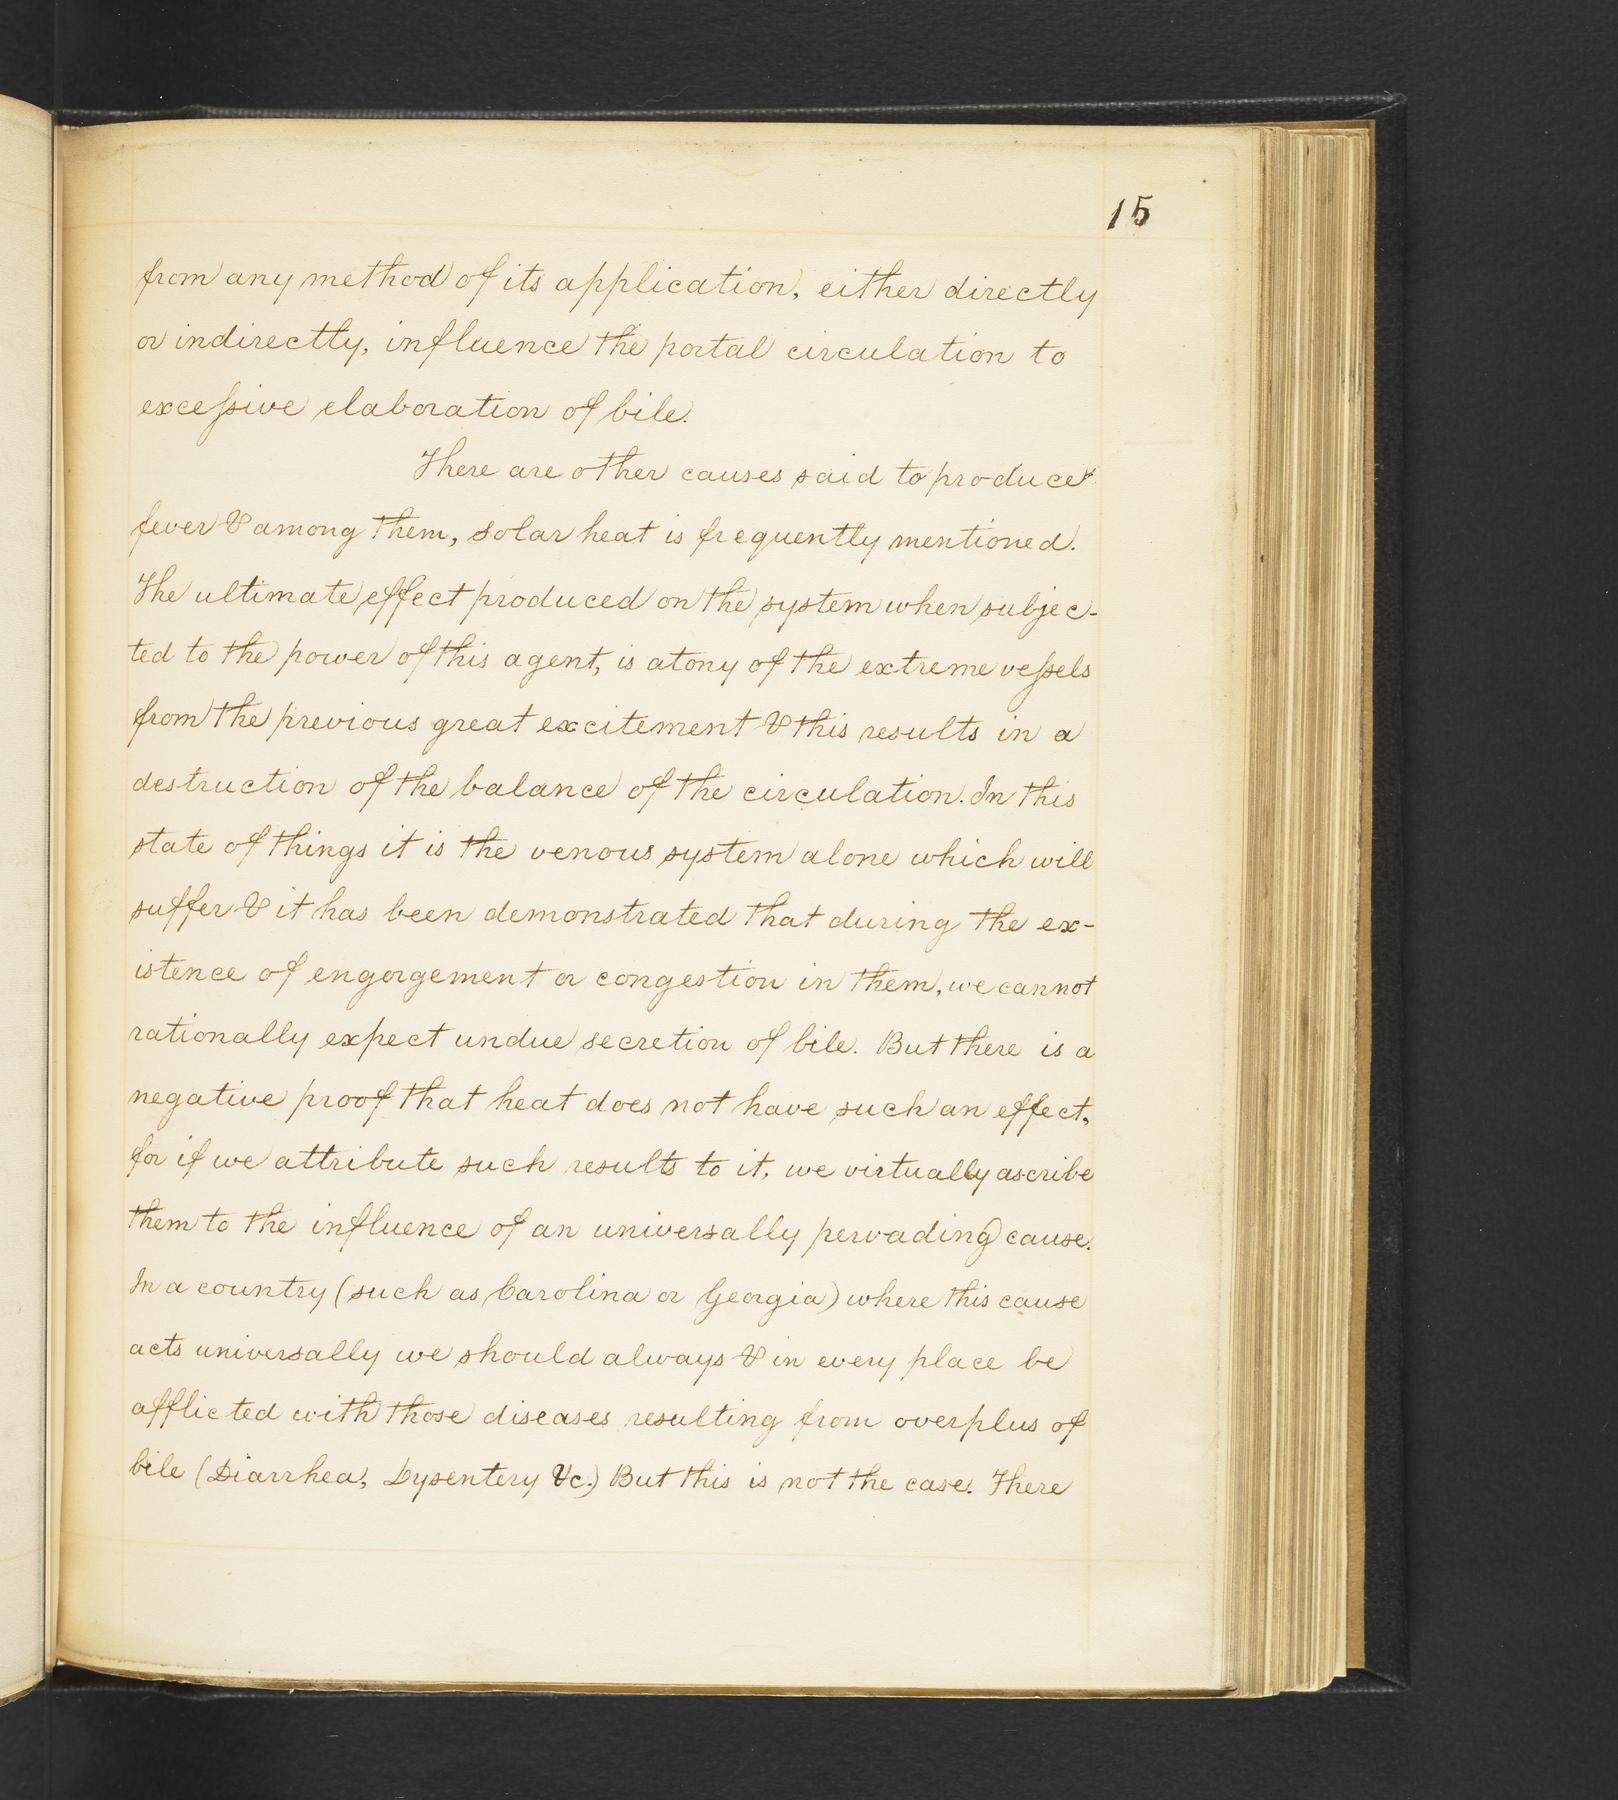 15
from any method of its application, either directly
or indirectly, influence the portal circulation to
exceſsive elaboration of bile.
There are other causes said to produce
fever & among them, solar heat is frequently mentioned.
The ultimate effect produced on the system when subjec-
ted to the power of this agent, is atony of the extreme veſsels
from the previous great excitement & this results in a
destruction of the balance of the circulation. In this
state of things it is the venous system alone which will
suffer & it has been demonstrated that during the ex-
istence of engorgement or congestion in them, we cannot
rationally expect undue secretion of bile. But there is a
negative proof that heat does not have such an effect,
for if we attribute such results to it, we virtually ascribe
them to the influence of an universally pervading cause.
In a country (such as Carolina or Georgia) where this cause
acts universally we should always & in every place be
afflicted with those diseases resulting from overplus of
bile (Diarrhea, Dysentery &c.) But this is not the case. There